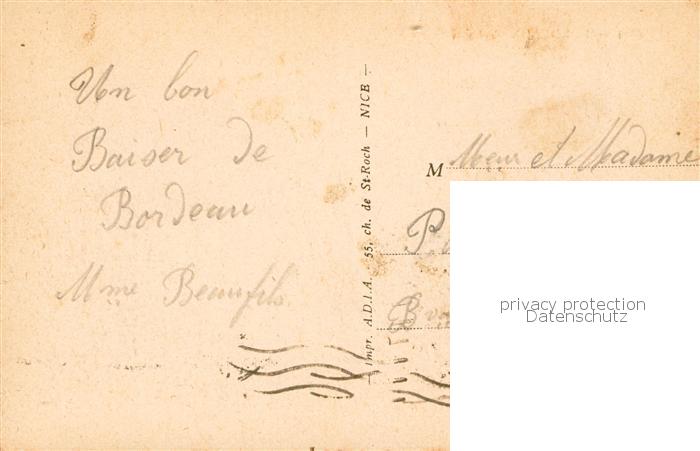 Un bon
Baiser de
Bordeau
Mme Beaufils
— Impr. A.D.I.A. 55, ch. de St-Roch — NICE —
M Meur et Madame
P
privacy protection
Datenschutz